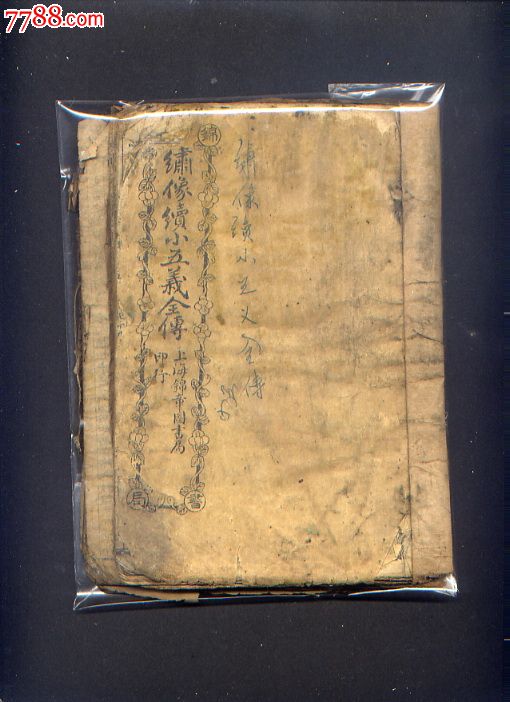 7788.com
錦
繡像續小五義全傳
上海錦章圖書局
印行
書
局
像续小五义全傳